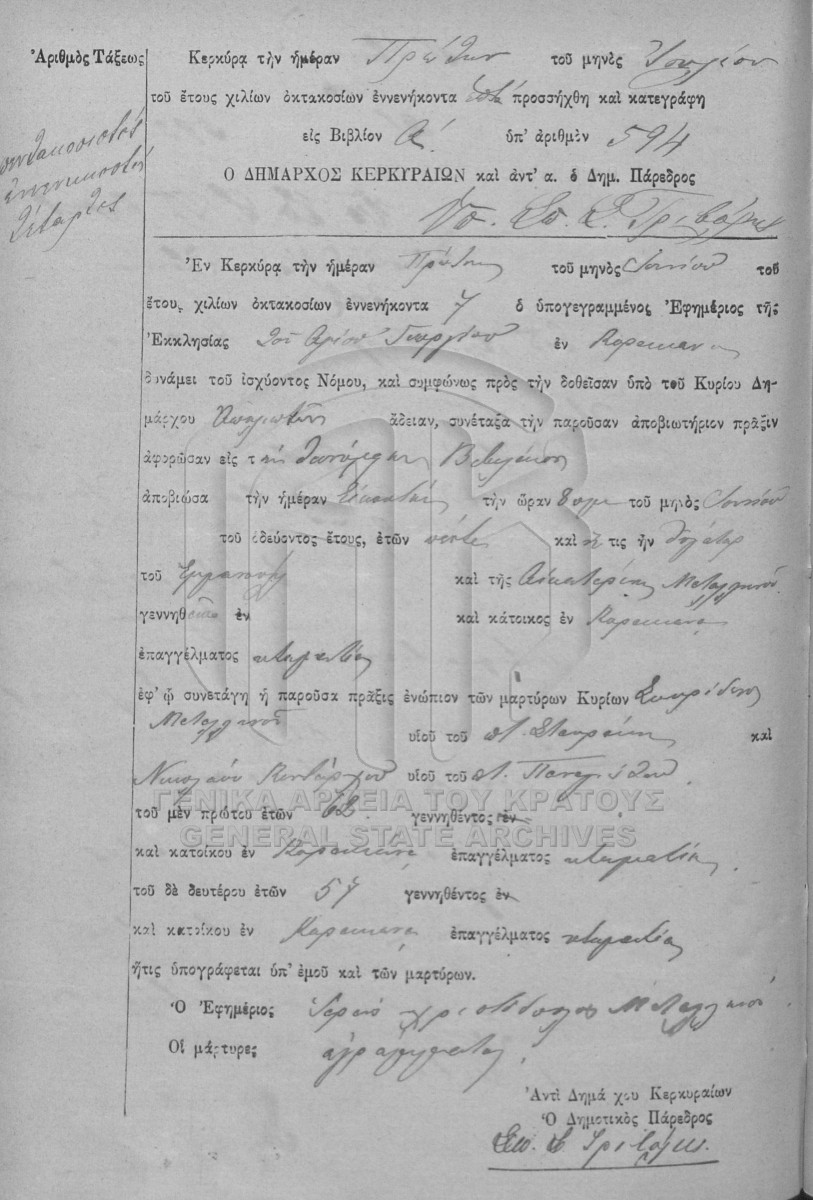 Ἀριθμὸς Τάξεως
πεντακοσιοστός
ἐννενηκοστός
τέταρτος
Κερκύρᾳ τὴν ἡμέραν Πρώτην τοῦ μηνὸς Ἰουλίου
τοῦ ἔτους χιλίων ὀκτακοσίων ἐννενήκοντα ἑπτά προσήχθη καὶ κατεγράφη
εἰς Βιβλίον Α΄. ὑπ' ἀριθμὸν 594
Ο ΔΗΜΑΡΧΟΣ ΚΕΡΚΥΡΑΙΩΝ καὶ ἀντ' α. ὁ Δημ. Πάρεδρος
Ἐν Κερκύρᾳ τὴν ἡμέραν Πρώτην τοῦ μηνὸς Ἰουνίου τοῦ
ἔτους χιλίων ὀκτακοσίων ἐννενήκοντα 7 ὁ ὑπογεγραμμένος Ἐφημέριος τῆς
Ἐκκλησίας τοῦ Ἁγίου Γεωργίου ἐν
δυνάμει τοῦ ἰσχύοντος Νόμου, καὶ συμφώνως πρὸς τὴν δοθεῖσαν ὑπὸ τοῦ Κυρίου Δη-
μάρχου ἄδειαν, συνέταξα τὴν παροῦσαν ἀποβιωτήριον πρᾶξιν
ἀφορῶσαν εἰς τὴν
ἀποβιώσα τὴν ἡμέραν Εἰκοστήν τὴν ὥραν 8 πμ τοῦ μηνὸς Ἰουνίου
τοῦ ὁδεύοντος ἔτους, ἐτῶν πέντε καὶ ἥτις ἦν θυγάτηρ
τοῦ Ἐμμανουήλ καὶ τῆς Αἰκατερίνης Μεταλληνοῦ
γεννηθ ἐν καὶ κάτοικος ἐν
ἐπαγγέλματος κτηματία
ἐφ' ᾧ συνετάγη ἡ παροῦσα πρᾶξις ἐνώπιον τῶν μαρτύρων Κυρίων Σπυρίδωνος
Μεταλληνοῦ υἱοῦ τοῦ πτ. Σταυράκη καὶ
Νικολάου Κοντάρχου υἱοῦ τοῦ πτ. Παναγιώτου
ΓΕΝΙΚΑ ΑΡΧΕΙΑ ΤΟΥ ΚΡΑΤΟΥΣ
τοῦ μὲν πρώτου ἐτῶν 62 γεννηθέντος ἐν
GENERAL STATE ARCHIVES
καὶ κατοίκου ἐν ἐπαγγέλματος κτηματία
τοῦ δὲ δευτέρου ἐτῶν 57 γεννηθέντος ἐν
καὶ κατοίκου ἐν ἐπαγγέλματος κτηματία
ἥτις ὑπογράφεται ὑπ' ἐμοῦ καὶ τῶν μαρτύρων.
Ὁ Ἐφημέριος Ἱερεύς Χριστόδουλος Μεταλληνός
Οἱ μάρτυρες ἀγράμματοι
Ἀντὶ Δημάρχου Κερκυραίων
Ὁ Δημοτικὸς Πάρεδρος